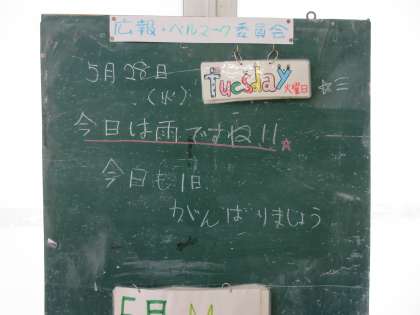 広報・ベルマーク委員会
5月28日
tuesday 火曜日
(火)
今日は雨ですね!!☆
今日も1日
がんばりましょう
5月 M